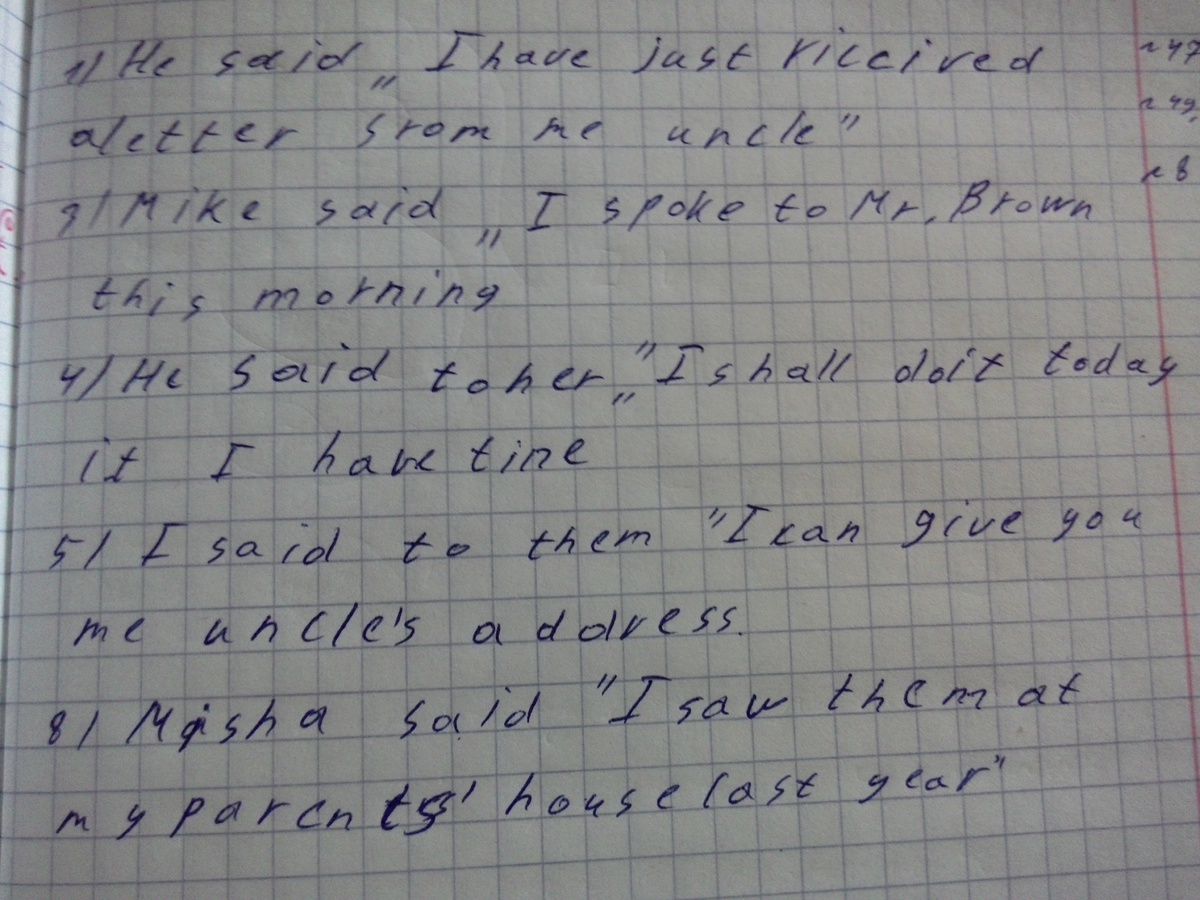 1) He said „ I have just riccired
aletter srom me uncle"
3) Mike said „ I spoke to Mr. Brown
this morning
4) He said to her „"I shall doit today
it I have tine
5) I said to them "I can give you
me uncle's address.
8) Misha said "I saw them at
my parents' house last year"
~47
~49.
~8